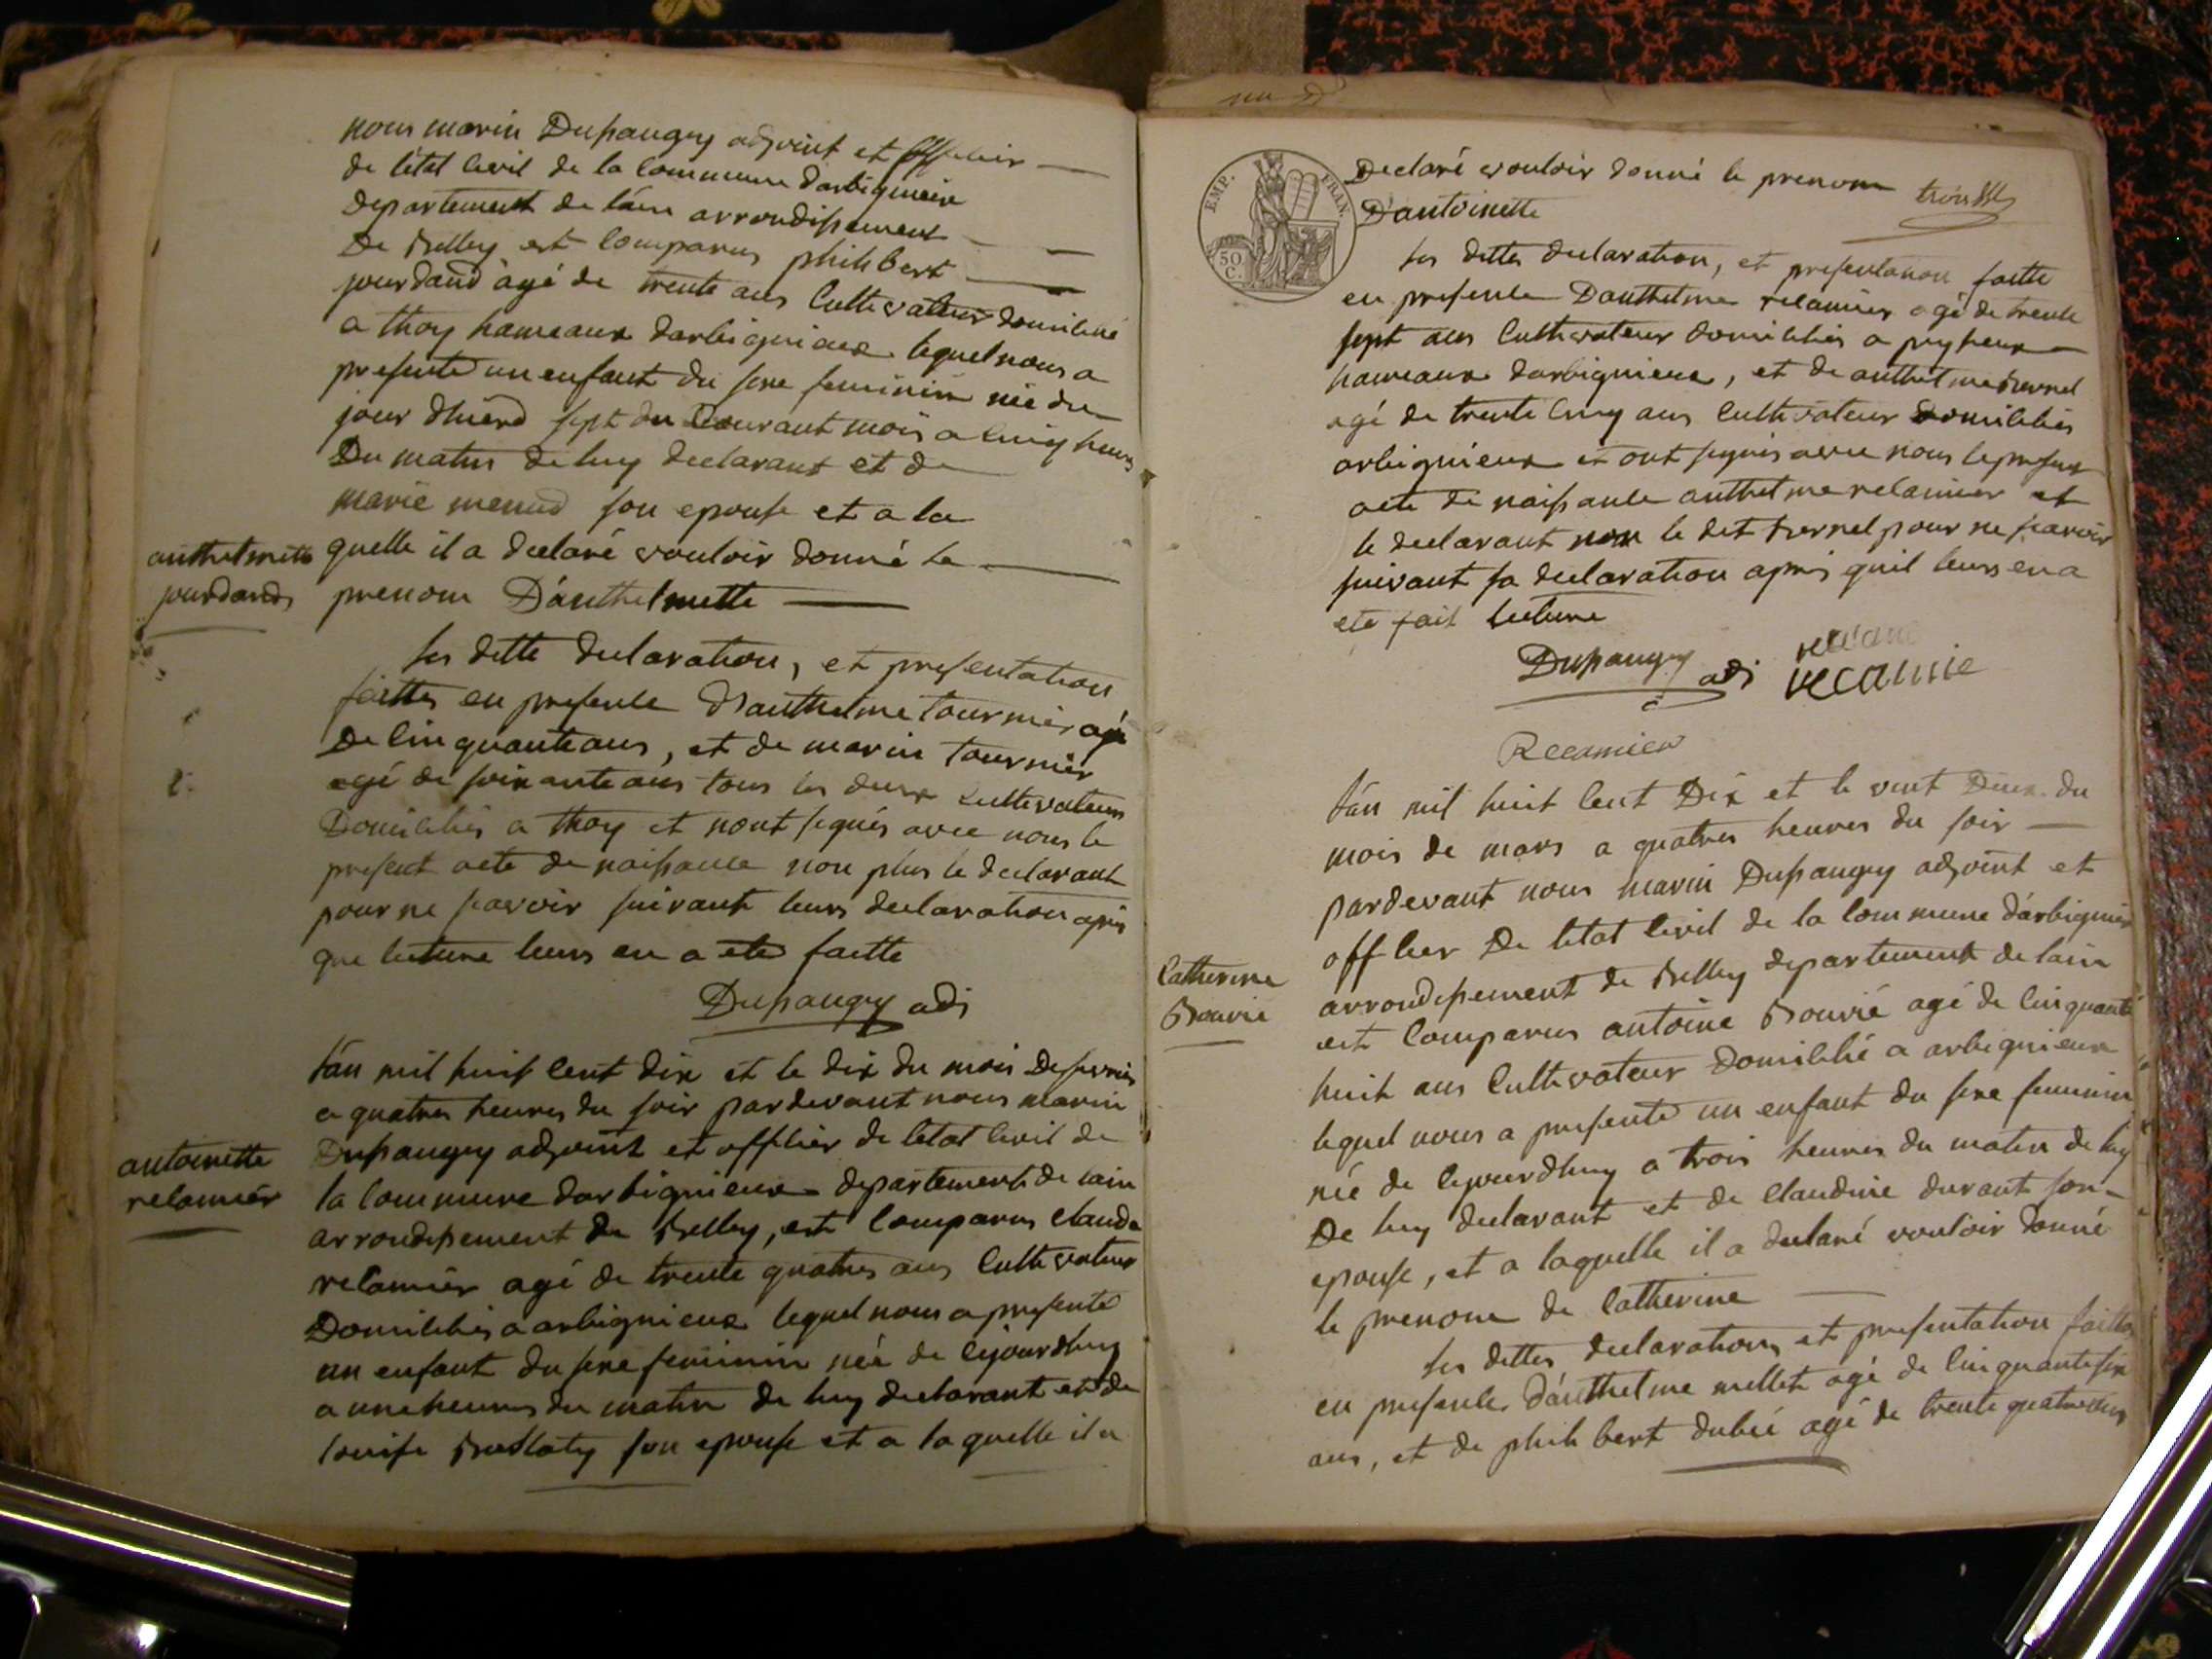 nous marin Dupaugey adjoint et officier
de létat Civil de la Commune darbignieux
Departement de láin arrondissement
De Belley est Comparus philibert
jourdand àgé de trente ans Cultivateur domicilié
a thoy hameaux darbignieux lequel nous a
presenté un enfant du sexe feminin née du
jour dhiérd sept du Courant mois a Cinq heures
Du matin de luy declarant et de
marie menud son epouse et a la
quelle il a declaré vouloir donné le
prenom D'anthelmette
anthelmette
jourdand
les ditte declaration, et presentation
faittes en presence D'anthelme tournier agé
De Cinquante ans, et de marin tournier
agé de soixante ans tous les deux Cultivateurs
Domiciliés a thoy et nont signés avec nous le
present acte de naissance non plus le declarant
pour ne scavoir suivant leurs declaration après
que lecture leurs en a eté faitte
Dupaugey adj
l'án mil huit Cent dix et le dix du mois De fevrier
a quatres heures du soir pardevant nous marin
Dupaugey adjoint et officier de létat Civil de
la Commune darbignieux departement de lain
arrondissement de Belley, est Comparus Claude
recamier agé de trente quatres ans Cultivateur
Domiciliés a arbignieux lequel nous a presenté
un enfant du sexe feminin née de Cejourdhuy
a une heures du matin de luy declarant et de
Louise son epouse et a la quelle il a
antoinette
recamier
EMP. FRAN.
50
C.
Declaré vouloir donné le prenom
D'antoinette
les dittes declaration, et presentation faitte
en presence Danthelme recamier agé de trente
sept ans Cultivateur domiciliés a pugieux
hameaux darbignieux, et de anthelme
agé de trente Cinq ans Cultivateur Domiciliés
arbignieux et ont signés avec nous le present
acte de naissance anthelme recamier et
le declarant non le dit pour ne scavoir
suivant sa declaration après quil leurs en a
eté fait lecture
Dupaugey adj recamie
Recamier
l'án mil huit Cent Dix et le vint Deux du
mois de mars a quatres heures du soir
pardevant nous marin Dupaugey adjoint et
officier De létat Civil de la Commune d'arbignieux
arrondissement de Belley departement de lain
est Comparus antoine Bouvié agé de Cinquante
huit ans Cultivateur Domicilié a arbignieux
lequel nous a presenté un enfant du sexe feminin
née de Cejourdhuy a trois heures du matin de luy
De luy declarant et de Claudine durant son
epouse, et a laquelle il a declaré vouloir donné
le prenom de Catherine
Catherine
Bouvié
les dittes declarations et presentation faittes
en presence D'anthelme mellet agé de Cinquante six
ans, et de philibert dubié agé de trente quatre ans